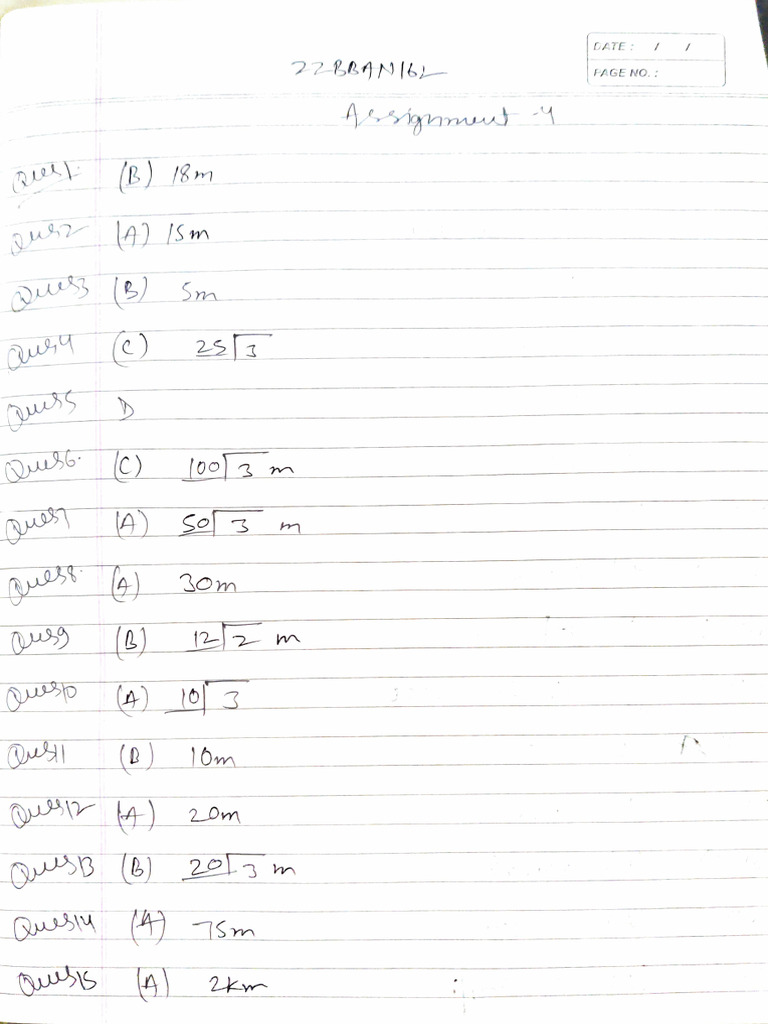 DATE: / /
PAGE NO.:
22BBAN162
Assignment -4
Ques1. (B) 18m
Ques2 (A) 15m
Ques3 (B) 5m
Ques4 (C) 25√3
Ques5 D
Ques6. (C) 100√3 m
Ques7 (A) 50√3 m
Ques8. (A) 30m
Ques9 (B) 12√2 m
Ques10 (A) 10√3
Ques11 (B) 10m
Ques12 (A) 20m
Ques13 (B) 20√3 m
Ques14 (A) 75m
Ques15 (A) 2km